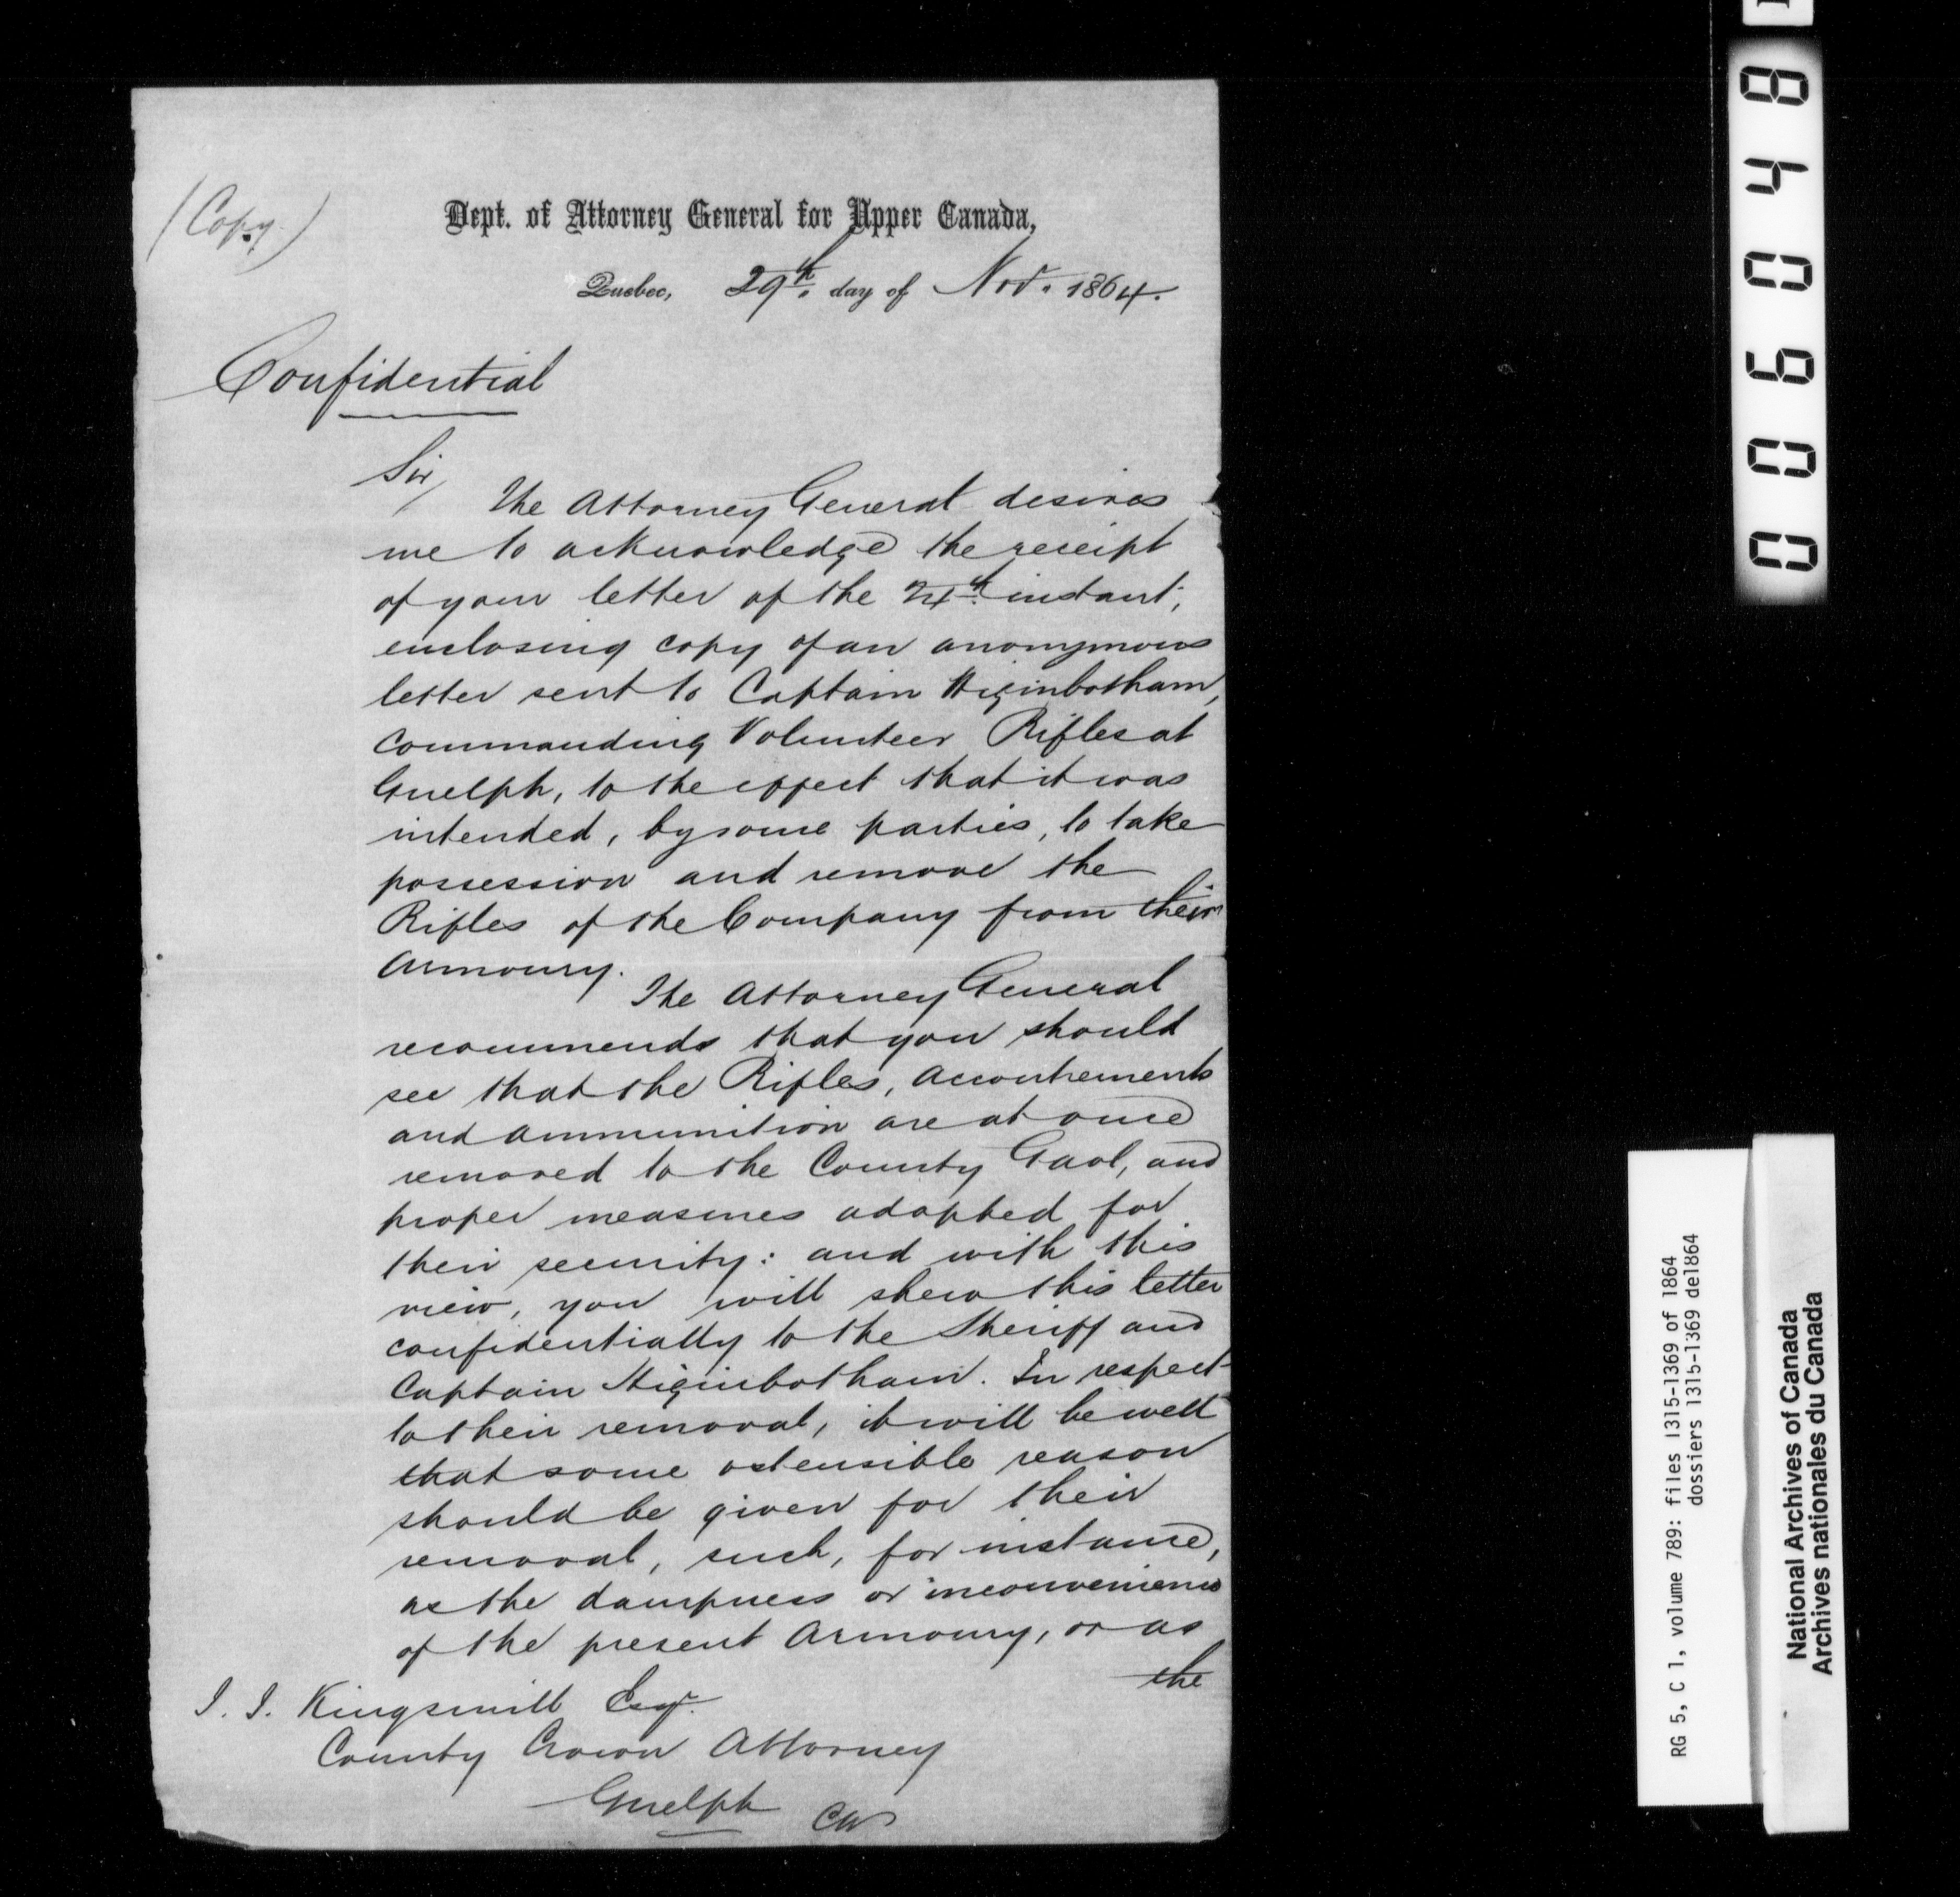 (Copy)
Dept. of Attorney General for Upper Canada,
Quebec, 29th day of Novr. 1864.
Confidential
Sir,
The Attorney General desires
me to acknowledge the receipt
of your letter of the 24th instant,
enclosing copy of an anonymous
letter sent to Captain Higinbotham,
Commanding Volunteer Rifles at
Guelph, to the effect that it was
intended, by some parties, to take
possession and remove the
Rifles of the Company from their
Armoury.
The Attorney General
recommends that you should
see that the Rifles, Accoutrements
and Ammunition are at once
removed to the County Gaol, and
proper measures adopted for
their security: and with this
view, you will shew this letter
confidentially to the Sheriff and
Captain Higinbotham. In respect
to their removal, it will be well
that some ostensible reason
should be given for their
removal, such, for instance,
as the dampness or inconvenience
of the present Armoury, or as
the
J. J. Kingsmill Esqr.
County Crown Attorney
Guelph CW
006048
RG 5, C 1, volume 789: files 1315-1369 of 1864
dossiers 1315-1369 de1864
National Archives of Canada
Archives nationales du Canada